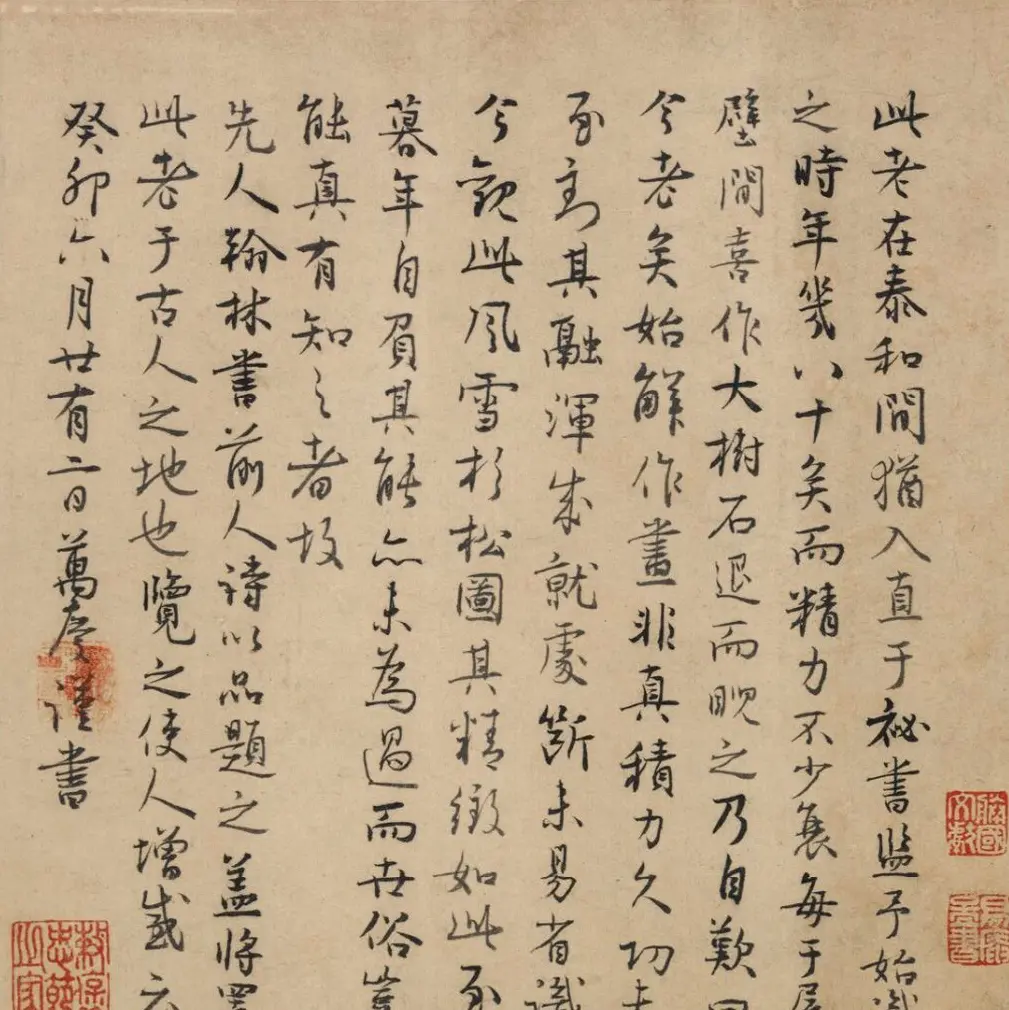 此老在泰和間猶入直于祕書監予始識
之時年幾八十矣而精力不少衰每于
壁間喜作大樹石退而睨之乃自歎曰
今老矣始解作畫非真積力久功夫
至到其融渾成就處斷未易省識
今觀此風雪杉松圖其精緻如此至
暮年自負其能亦未為過而世俗豈
能真有知之者故
先人翰林書前人詩以品題之蓋將置
此老于古人之地也覽之使人增感云
癸卯六月廿有二日萬慶謹書